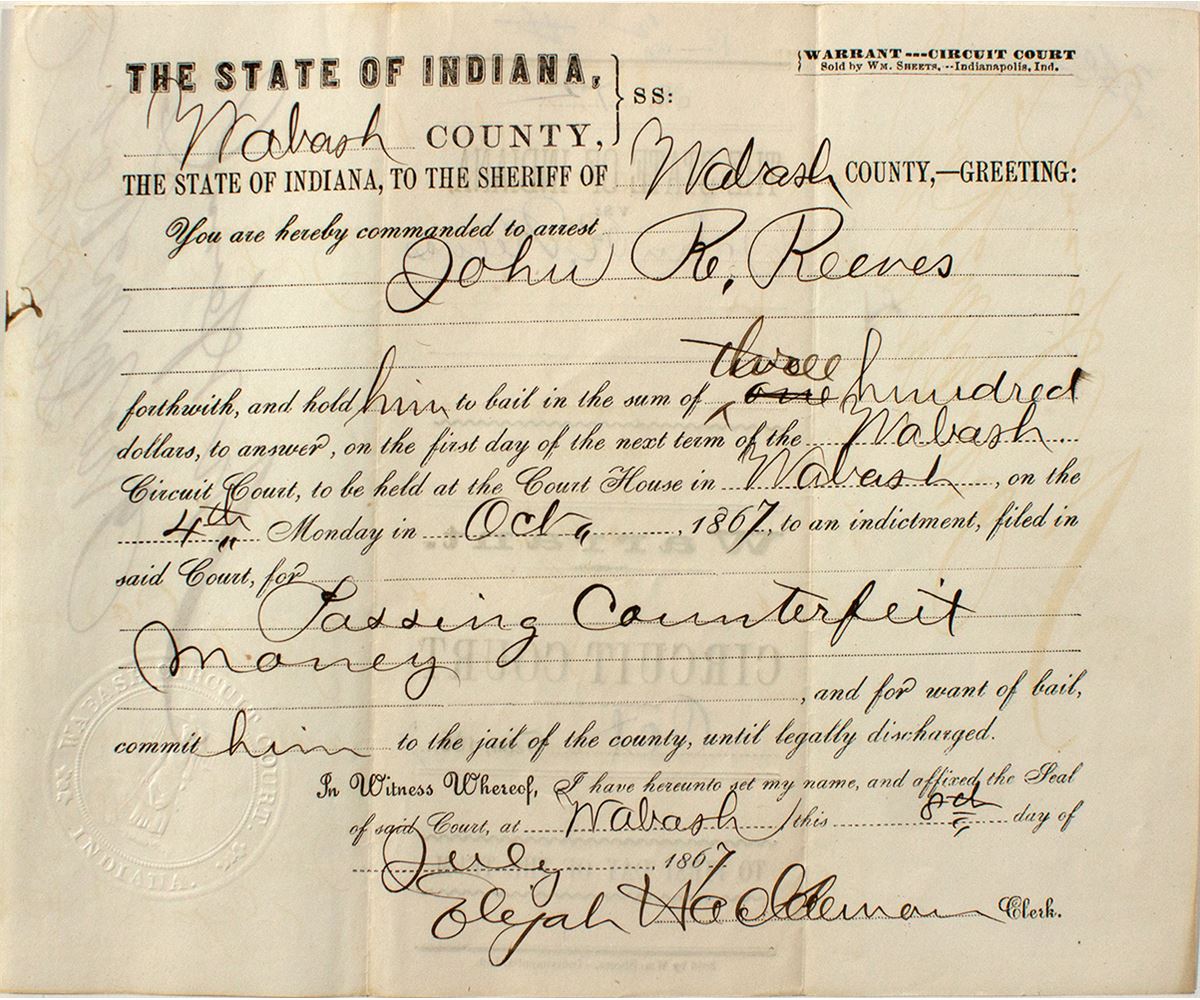 WARRANT---CIRCUIT COURT
Sold by WM. SHEETS, --Indianapolis, Ind.
THE STATE OF INDIANA,
SS:
Wabash COUNTY,
THE STATE OF INDIANA, TO THE SHERIFF OF Wabash COUNTY,—GREETING:
You are hereby commanded to arrest
John R. Reeves
three
forthwith, and hold him to bail in the sum of one hundred
dollars, to answer, on the first day of the next term of the Wabash
Circuit Court, to be held at the Court House in Wabash, on the
4th Monday in Oct, 1867, to an indictment, filed in
said Court, for
Passing Counterfeit
Money
, and for want of bail,
commit him to the jail of the county, until legally discharged.
In Witness Whereof, I have hereunto set my name, and affixed the Seal
of said Court, at Wabash, this 8th day of
July 1867
Elijah Hackleman Clerk.
WABASH CIRCUIT COURT.
INDIANA.